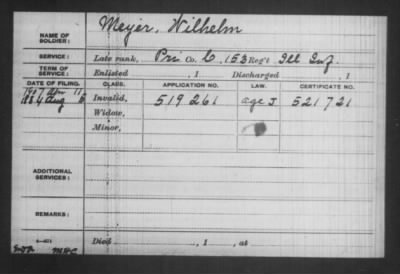 Meyer, Wilhelm
NAME OF SOLDIER:
SERVICE: Late rank, Pri Co. C, 153 Reg't Ill Inf.
TERM OF SERVICE: Enlisted , 1 Discharged , 1
DATE OF FILING. CLASS. APPLICATION NO. LAW. CERTIFICATE NO.
1907 Apr 11
1884 Aug Invalid, 519261 age J 521721
Widow,
Minor,
ADDITIONAL SERVICES:
REMARKS:
Died , 1 , at